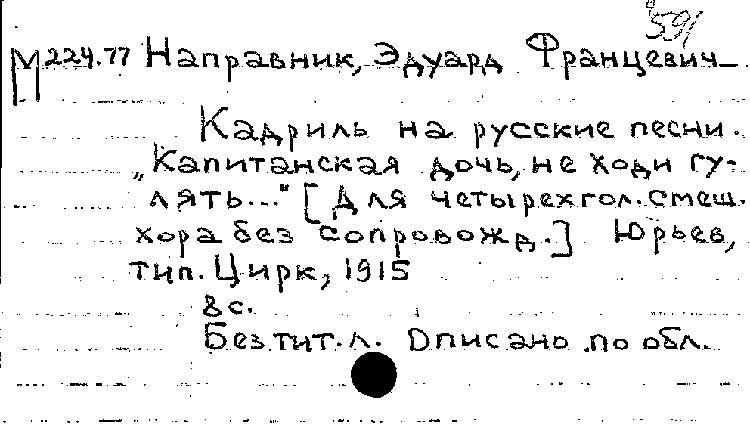 591
М 224.77 Направник, Эдуард Францевич
Кадриль на русские песни.
„Капитанская дочь, не ходи гу-
лять..." [Для четырехгол. смеш.
хора без сопровожд.] Юрьев,
тип. Цирк, 1915
8 с.
Без тит. л. Описано по обл.